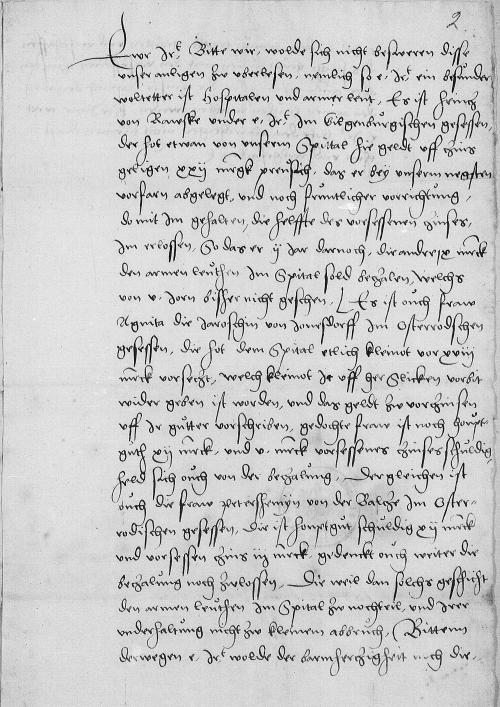 2
Ewr Jr. Bitte wir, wolde sich nicht besweren disse
unser anligen zw uberlesen, nemlich so e. Jr. ein besunder
woltetter ist hospitalen und armer leut, Es ist heintz
von Rawske under e. Jr. Im Gilgenburgischen gesessen,
der hot etwan von unserm Spital hie geldt uff zins
geligen xxij mrgk preusch, das er bey unserm negsten
vorfarn abgelegt, und noch fruntlicher vorrichtung,
do mit Im gehalten, die helffte des vorsessenen zinses,
Im erlossen, So das er ij Jar darnoch, die andere ix mrck
den armen leuthen Im Spital sold bezalen, welchs
von v. Jorn bissher nicht geschen, Es ist ouch fraw
Agnita die Jaroschin von Jonesdorff Im Osterrodschen
gesessen, die hot dem Spital etlich kleinot vor xviij
mrck vorsetzt, welch kleinot Ir uff her Slicken vorbit
wider geben ist worden, und das geldt zw vorzinsen
uff Ir gutter vorschriben, gedochte fraw ist noch houpt-
guth xij mrck, und v. mrck vorsessenes zinses schuldig
held sich ouch von der bezalung, Der gleichen ist
ouch die fraw petershenyn von der Baltze Im Oster-
rodischen gesessen, Die ist houptgut schuldig xij mrck
und vorsessen zins iij mrck, gedenckt ouch weiter die
bezalung noch zwlossen, Die weil dan solchs geschicht
den armen leuthen Im Spital zw nochteil, und Irer
underhaltung nicht zw kleinem abbruch, Bittenn
derwegen e. Jr. wolde der barmherzigheit noch die-